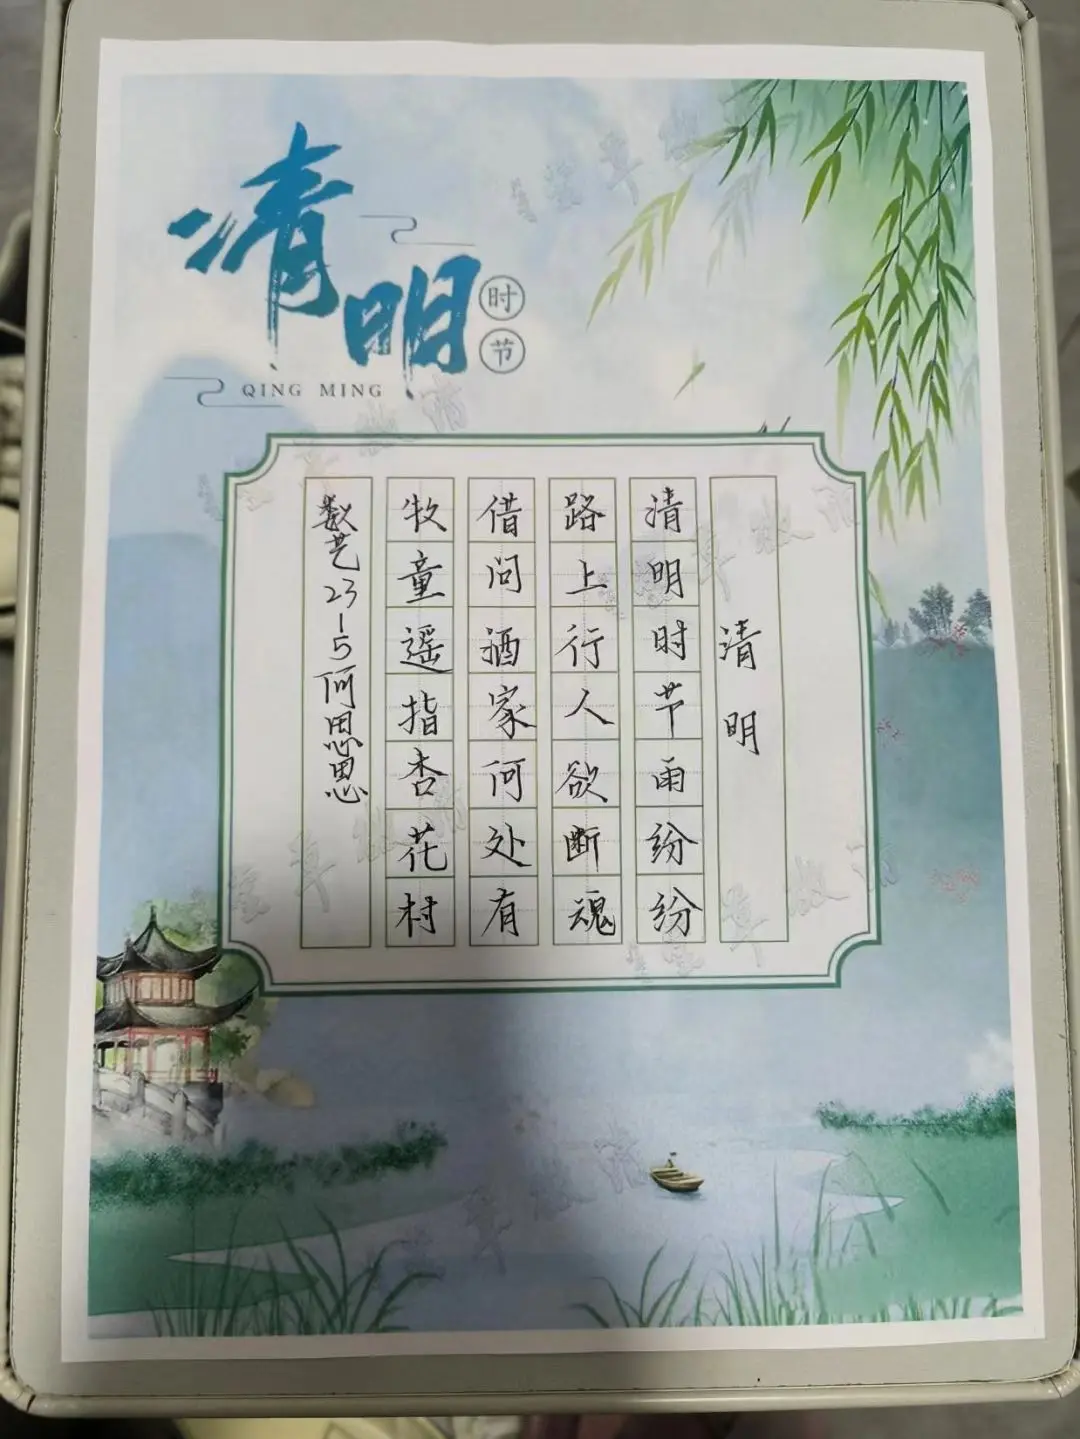 清明
时节
QING MING
清明
清明时节雨纷纷
路上行人欲断魂
借问酒家何处有
牧童遥指杏花村
数艺23-5何思思